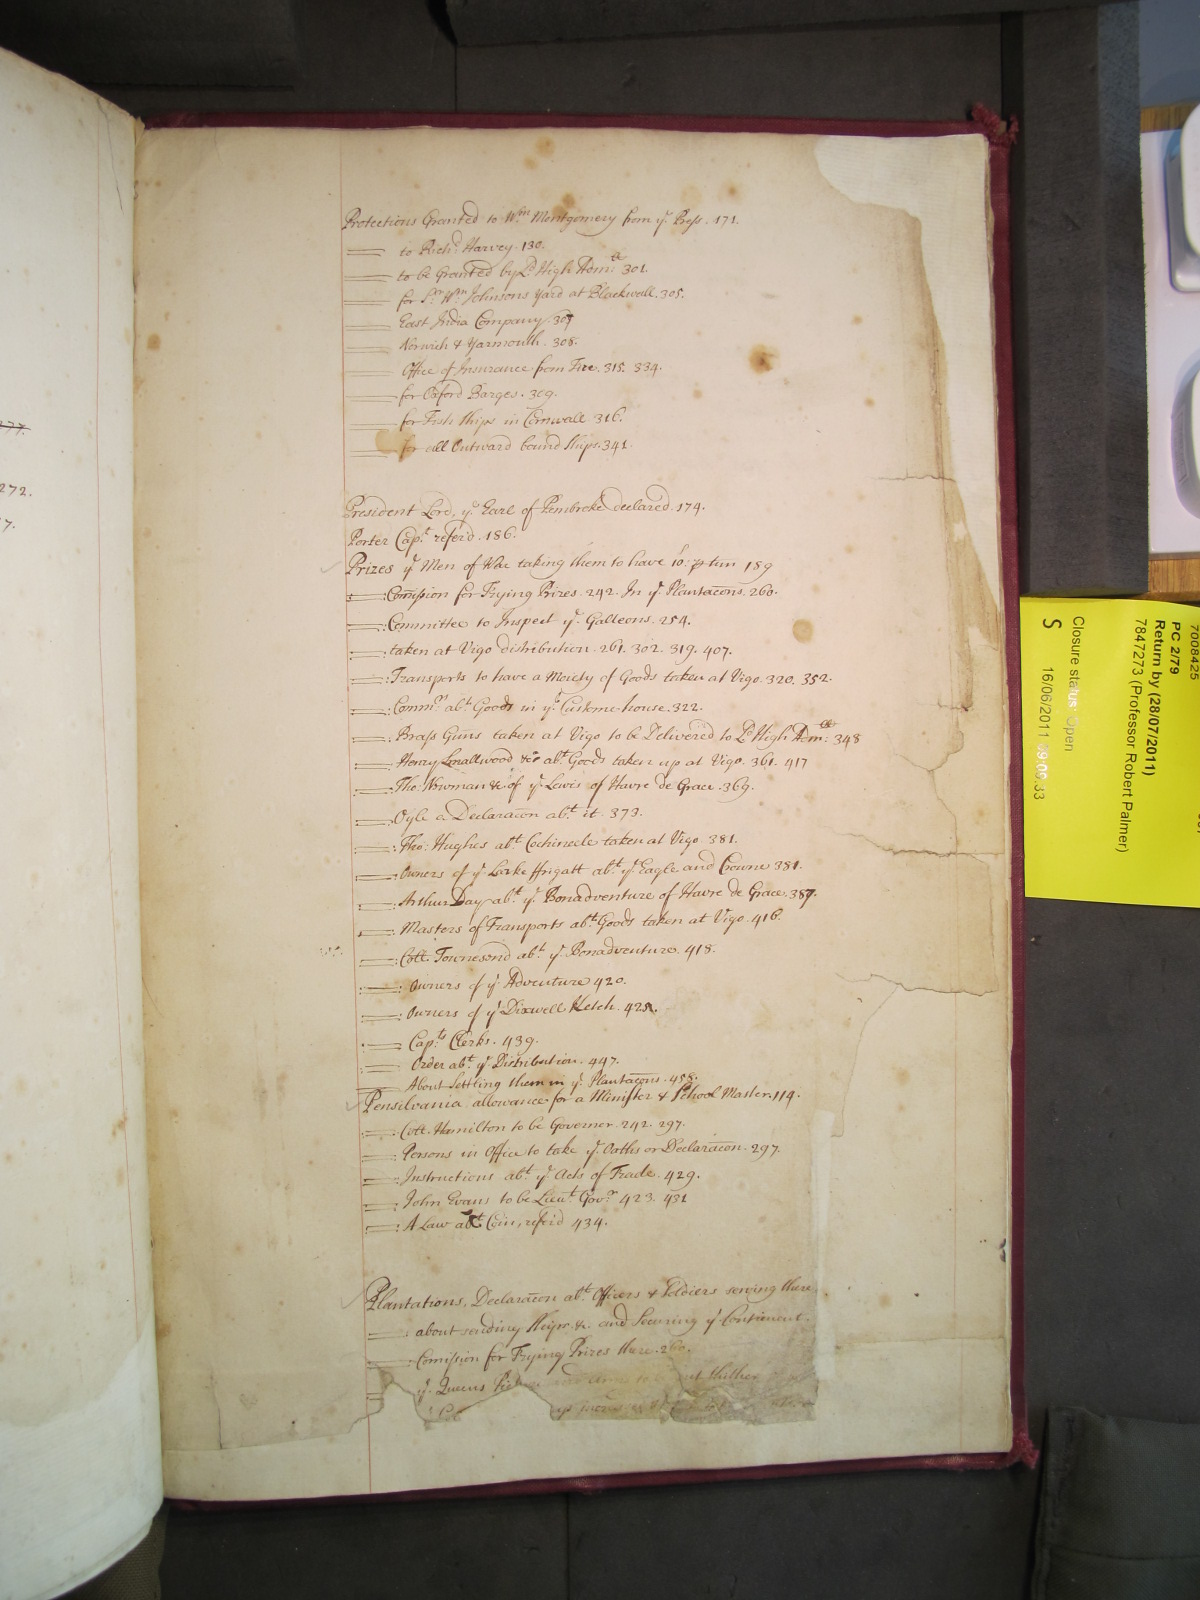 Protections Granted to Wm. Montgomery from ye. Press. 171.
to Richd. Harvey. 130.
to be Granted by Ld. High Adm:ll 301.
for Sr. Wm. Johnsons yard at Blackwall. 305.
East India Company. 307
Norwich & Yarmouth. 308.
Office of Insurance from Fire. 315. 334.
for Oxford Barges. 309.
for Fish Ships in Cornwall. 316.
for all Outward bound Ships. 341.
President Lord, ye. Earl of Pembroke declared. 174.
Porter Capt. referd. 186.
Prizes ye. Men of War taking them to have 10: p tun 189
Comission for Trying Prizes. 242. In ye. Plantacons. 260.
Committee to Inspect ye. Galleons. 254.
taken at Vigo distribution. 261. 302. 319. 407.
Transports to have a Moiety of Goods taken at Vigo. 320. 352.
Commrs. abt. Goods in ye. Custome-house. 322.
Brass Guns taken at Vigo to be Delivered to Ld. High Adm:ll 348
Henry Smallwood &c abt. Goods taken up at Vigo. 361. 417
Tho. Newman &c of ye. Lewis of Havre de Grace. 369.
Ogle a Declaracon abt. it. 373.
Tho: Hughes abt. Cochineele taken at Vigo. 381.
Owners of ye. Larke ffrigatt abt. ye. Eagle and Crowne 381.
Arthur Day abt. ye. Bonadventure of Havre de Grace. 387.
Masters of Transports abt. Goods taken at Vigo. 416.
Coll. Townesend abt. ye. Bonadventure. 418.
Owners of ye. Adventure 420.
Owners of ye. Dixwell Ketch.
Capt. Clerks. 439.
Order abt. ye. Distribution. 447.
About Settling them in ye. Plantacons. 458.
Pensilvania allowance for a Minister & School Master. 114.
Coll. Hamilton to be Governer. 242. 297.
Persons in Office to take ye. Oaths or Declaracon. 297.
Instructions abt. ye. Acts of Trade. 429.
John Evans to be Lieut. Govr. 423. 431
A Law abt Coin, referd 434.
Plantations, Declaracon abt. Officers & Soldiers serving there
about sending Ships &c. and Securing ye. Continent.
Comission for Trying Prizes there. 260.
ye. Queens thither
277.
272.
7.
7008425
PC 2/79
Return by (28/07/2011)
7847273 (Professor Robert Palmer)
Closure status: Open
S 16/06/2011 09:09:33